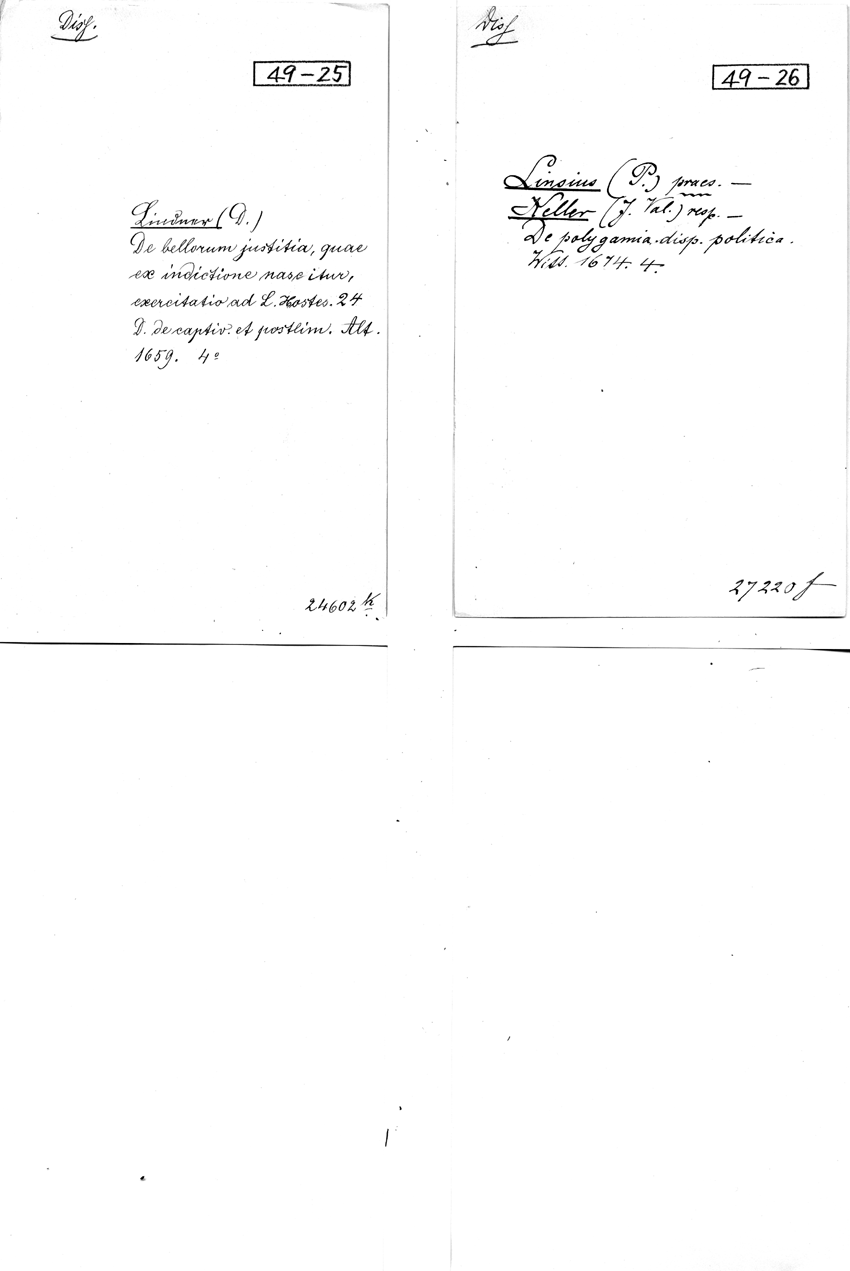 Diss.
49-25
Lindner (D.)
De bellorum justitia, quae
ex indictione nascitur,
exercitatio ad L. Hostes. 24
D. de captiv. et postlim. Alt.
1659. 4º
24602 k
Diss
49-26
Linsius (P.) praes. —
Keller (J. Val.) resp. —
De polygamia. disp. politica.
Witt. 1674. 4.
27220 f